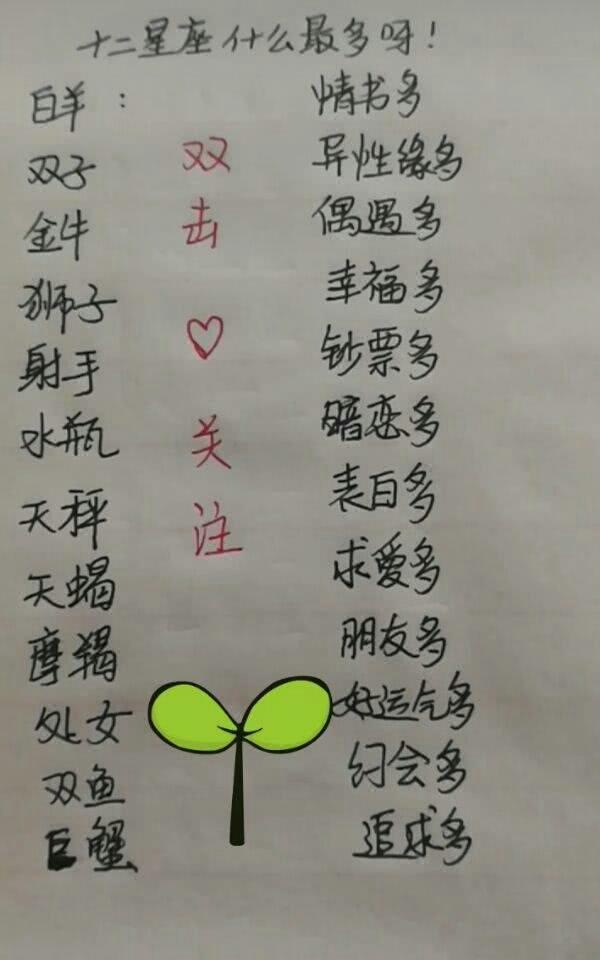 十二星座什么最多呀！
白羊： 情书多
双子 异性缘多
金牛 偶遇多
狮子 幸福多
射手 钞票多
水瓶 暗恋多
天秤 表白多
天蝎 求爱多
摩羯 朋友多
处女 好运气多
双鱼 约会多
巨蟹 追求多
双击♡关注